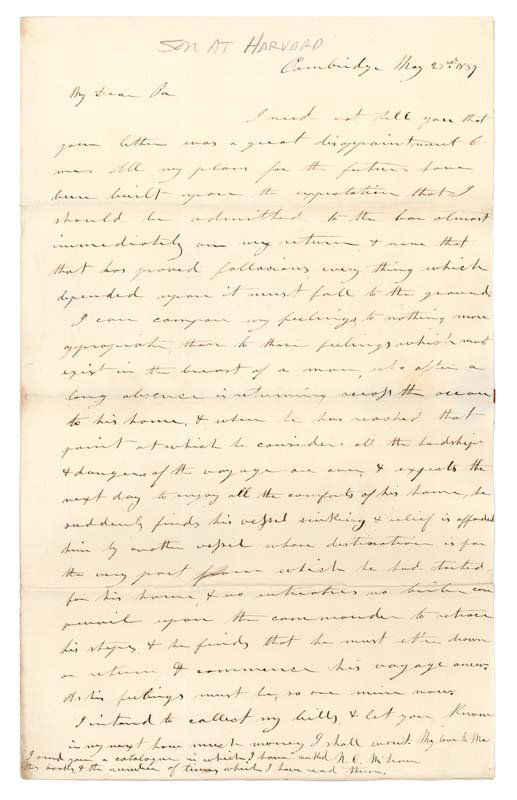 Son at Harvard
Cambridge May 23rd 1839
My Dear Pa
I need not tell you that
your letter was a great disappointment to
me. All my plans for the future have
been built upon the expectation that I
should be admitted to the bar almost
immediately on my return & now that
that has proved fallacious every thing which
depended upon it must fall to the ground.
I can compare my feelings to nothing more
appropriate than to those feelings which must
exist in the breast of a man, who after a
long absence is returning across the ocean
to his home, & when he has reached that
point at which he considers all the hardships
& dangers of the voyage are over, & expects the
next day to enjoy all the comforts of his home, he
suddenly finds his vessel sinking & relief is afforded
him by another vessel whose destination is for
the very port from which he had started
for his home, & no entreaties no bribe can
prevail upon the commander to retrace
his steps, & he finds that he must down
or return & commence his voyage anew.
As his feelings must be, so are mine now.
I intend to collect my bills, & let you know
in my next how much money I shall want. My love to Ma
I send you a catalogue in which I have marked N. C.
the books & the number of times which I have read them.